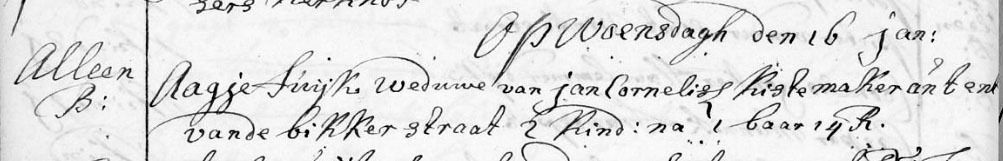 Op Woensdagh den 16 jan:
Alleen Aagje Fuijk Weduwe van jan Cornelisz Kistemaker ant ent
B: vande bikker straat 2 Kind: na 1 baar 14 R.